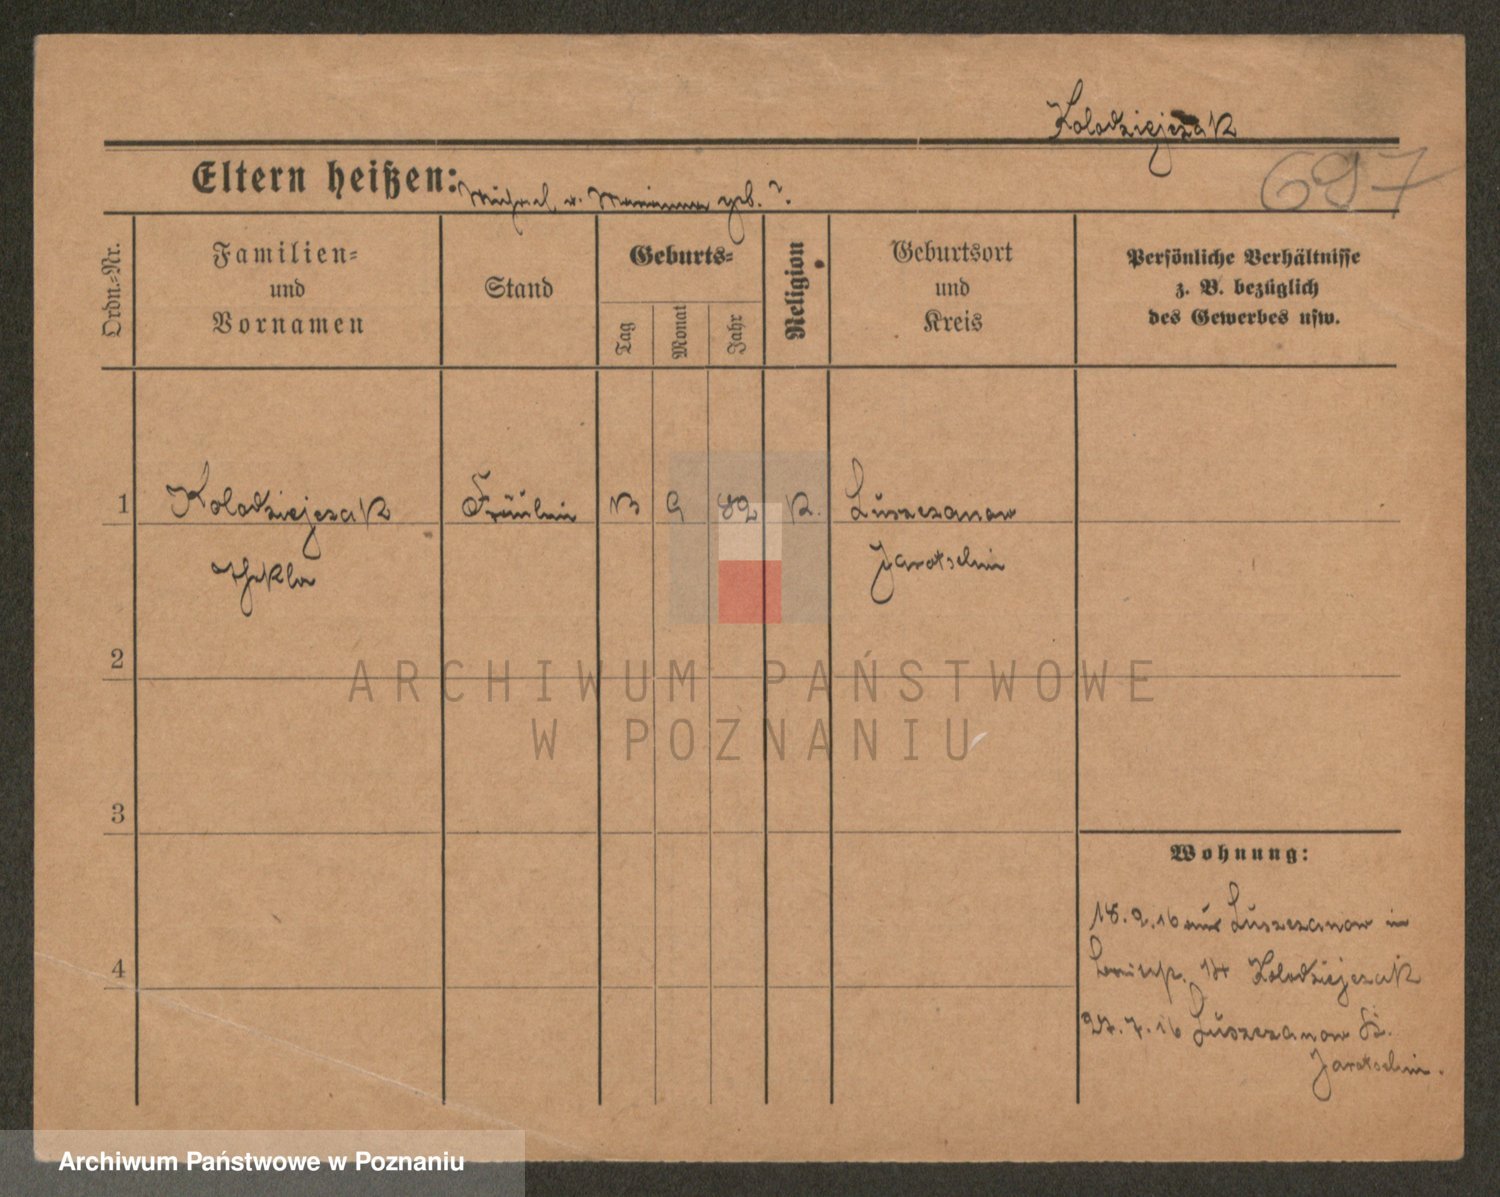 Kolodziejczak
697
Eltern heißen: Michael u. geb. ?.
Ordn.-Nr.
Familien-
und
Vornamen
Stand
Geburts-
Tag
Monat
Jahr
Religion
Geburtsort
und
Kreis
Persönliche Verhältnisse
z. B. bezüglich
des Gewerbes usw.
1 Kolodziejczak Fräulein 9 82 K. Luszczanow
Thekla Jarotschin
2
3
4
Wohnung:
18.2.16 aus Luszczanow in
14 Kolodziejczak
27.7.16 Luszczanow
Jarotschin.
ARCHIWUM PAŃSTWOWE
W POZNANIU
Archiwum Państwowe w Poznaniu